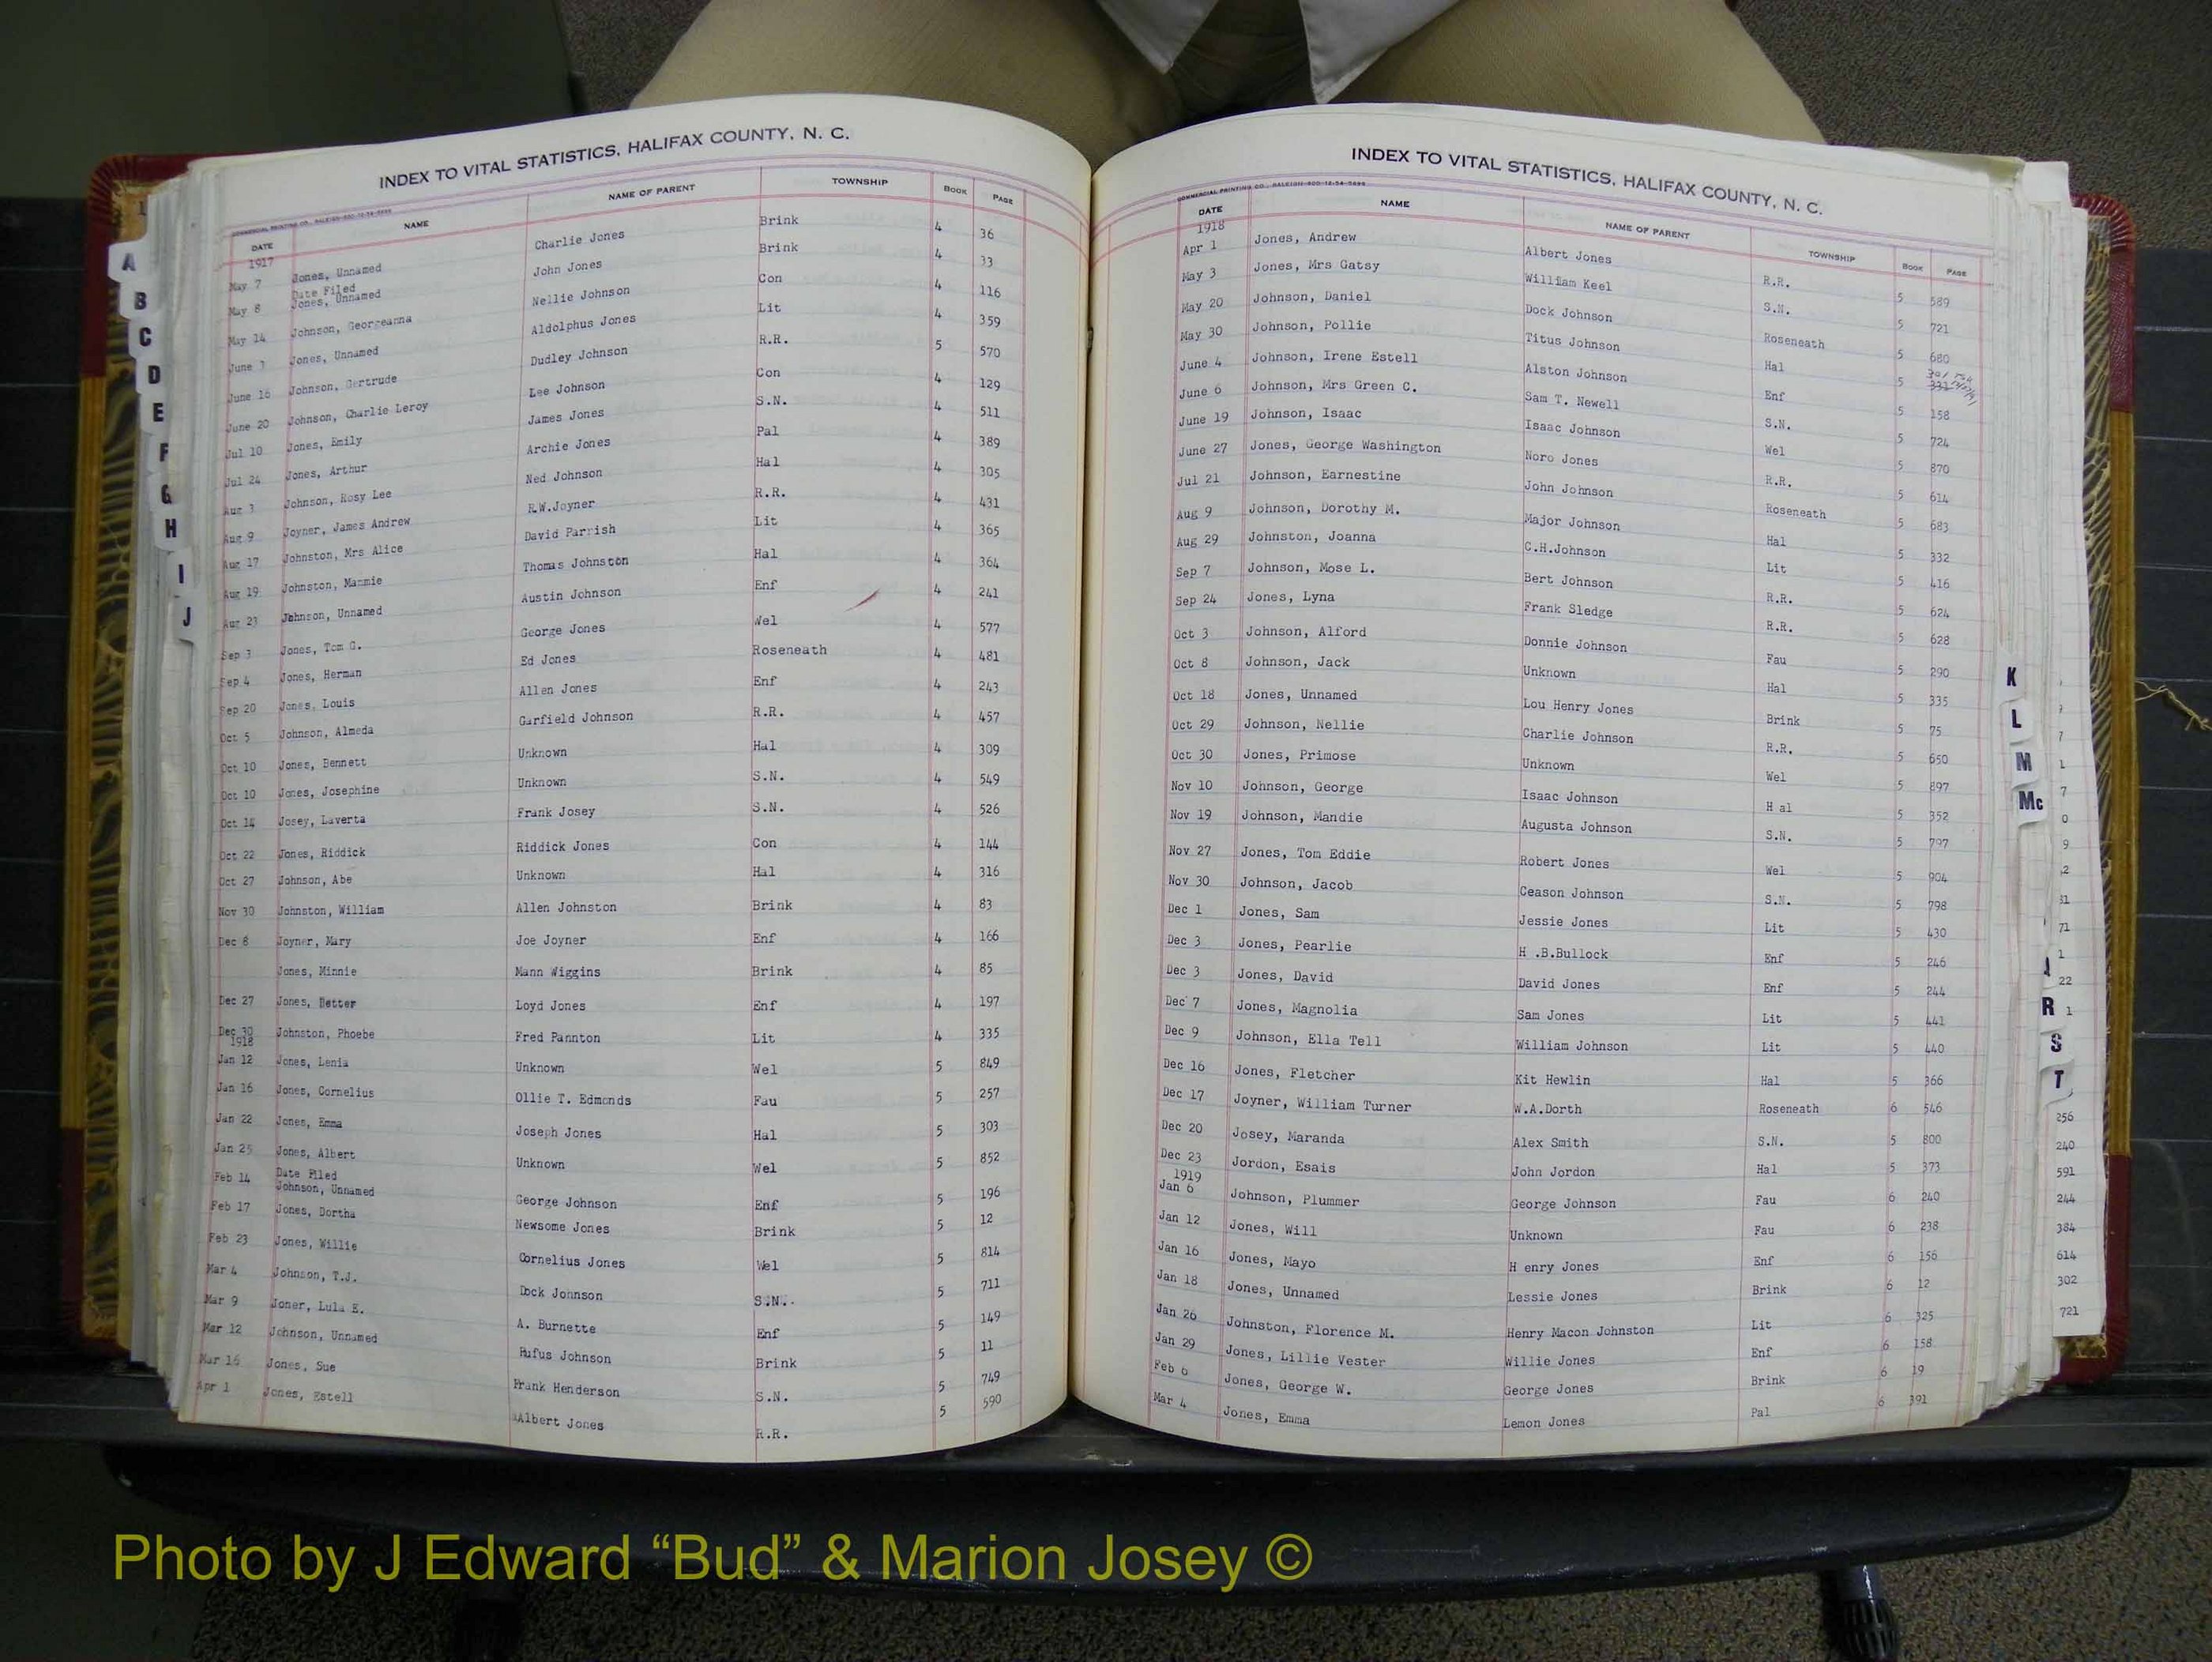 INDEX TO VITAL STATISTICS, HALIFAX COUNTY, N. C.
DATE NAME NAME OF PARENT TOWNSHIP BOOK PAGE
1917
May 7 Jones, Unnamed Charlie Jones Brink 4 36
Date Filed
May 8 Jones, Unnamed John Jones Brink 4 33
May 14 Johnson, Georgeanna Nellie Johnson Con 4 116
June Jones, Unnamed Aldolphus Jones Lit 4 359
June 16 Johnson, Gertrude Dudley Johnson R.R. 5 570
June 20 Johnson, Charlie Leroy Lee Johnson Con 4 129
Jul 10 Jones, Emily James Jones S.N. 4 511
Jul 24 Jones, Arthur Archie Jones Pal 4 389
Aug 3 Johnson, Rosy Lee Ned Johnson Hal 4 305
Aug 9 Joyner, James Andrew R.W.Joyner R.R. 4 431
Aug 17 Johnston, Mrs Alice David Parrish Lit 4 365
Aug 19 Johnston, Mammie Thomas Johnston Hal 4 364
Aug 23 Johnson, Unnamed Austin Johnson Enf 4 241
Sep 3 Jones, Tom G. George Jones Wel 4 577
Sep 4 Jones, Herman Ed Jones Roseneath 4 481
Sep 20 Jones, Louis Allen Jones Enf 4 243
Oct 5 Johnson, Almeda Garfield Johnson R.R. 4 457
Oct 10 Jones, Bennett Unknown Hal 4 309
Oct 10 Jones, Josephine Unknown S.N. 4 549
Oct 14 Josey, Laverta Frank Josey S.N. 4 526
Oct 22 Jones, Riddick Riddick Jones Con 4 144
Oct 27 Johnson, Abe Unknown Hal 4 316
Nov 30 Johnston, William Allen Johnston Brink 4 83
Dec 8 Joyner, Mary Joe Joyner Enf 4 166
Jones, Minnie Mann Wiggins Brink 4 85
Dec 27 Jones, Better Loyd Jones Enf 4 197
Dec 30 Johnston, Phoebe Fred Pannton Lit 4 335
1918
Jan 12 Jones, Lenia Unknown Wel 5 849
Jan 16 Jones, Cornelius Ollie T. Edmonds Fau 5 257
Jan 22 Jones, Emma Joseph Jones Hal 5 303
Jan 25 Jones, Albert Unknown Wel 5 852
Date Filed
Feb 14 Johnson, Unnamed George Johnson Enf 5 196
Feb 17 Jones, Dortha Newsome Jones Brink 5 12
Feb 23 Jones, Willie Cornelius Jones Wel 5 814
Mar 4 Johnson, T.J. Dock Johnson S.N. 5 711
Mar 9 Joner, Lula E. A. Burnette Enf 5 149
Mar 12 Johnson, Unnamed Rufus Johnson Brink 5 11
Mar 16 Jones, Sue Frank Henderson S.N. 5 749
Apr 1 Jones, Estell Albert Jones R.R. 5 590
A
B
C
D
E
F
G
H
I
J
INDEX TO VITAL STATISTICS, HALIFAX COUNTY, N. C.
COMMERCIAL PRINTING CO., RALEIGH
DATE NAME NAME OF PARENT TOWNSHIP BOOK PAGE
1918
Apr 1 Jones, Andrew Albert Jones R.R. 5 589
May 3 Jones, Mrs Gatsy William Keel S.N. 5 721
May 20 Johnson, Daniel Dock Johnson Roseneath 5 680
May 30 Johnson, Pollie Titus Johnson Hal 5 331
June 4 Johnson, Irene Estell Alston Johnson Enf 5 158
June 6 Johnson, Mrs Green C. Sam T. Newell S.N. 5 724
June 19 Johnson, Isaac Isaac Johnson Wel 5 870
June 27 Jones, George Washington Noro Jones R.R. 5 614
Jul 21 Johnson, Earnestine John Johnson Roseneath 5 683
Aug 9 Johnson, Dorothy M. Major Johnson Hal 5 332
Aug 29 Johnston, Joanna C.H.Johnson Lit 5 416
Sep 7 Johnson, Mose L. Bert Johnson R.R. 5 624
Sep 24 Jones, Lyna Frank Sledge R.R. 5 628
Oct 3 Johnson, Alford Donnie Johnson Fau 5 290
Oct 8 Johnson, Jack Unknown Hal 5 335
Oct 18 Jones, Unnamed Lou Henry Jones Brink 5 75
Oct 29 Johnson, Nellie Charlie Johnson R.R. 5 650
Oct 30 Jones, Primose Unknown Wel 5 897
Nov 10 Johnson, George Isaac Johnson H al 5 352
Nov 19 Johnson, Mandie Augusta Johnson S.N. 5 797
Nov 27 Jones, Tom Eddie Robert Jones Wel 5 904
Nov 30 Johnson, Jacob Ceason Johnson S.N. 5 798
Dec 1 Jones, Sam Jessie Jones Lit 5 430
Dec 3 Jones, Pearlie H .B.Bullock Enf 5 246
Dec 3 Jones, David David Jones Enf 5 244
Dec 7 Jones, Magnolia Sam Jones Lit 5 441
Dec 9 Johnson, Ella Tell William Johnson Lit 5 440
Dec 16 Jones, Fletcher Kit Hewlin Hal 5 366
Dec 17 Joyner, William Turner W.A.Dorth Roseneath 6 546
Dec 20 Josey, Maranda Alex Smith S.N. 5 800
Dec 23 Jordon, Esais John Jordon Hal 5 373
1919
Jan 6 Johnson, Plummer George Johnson Fau 6 240
Jan 12 Jones, Will Unknown Fau 6 238
Jan 16 Jones, Mayo H enry Jones Enf 6 156
Jan 18 Jones, Unnamed Lessie Jones Brink 6 12
Jan 26 Johnston, Florence M. Henry Macon Johnston Lit 6 325
Jan 29 Jones, Lillie Vester Willie Jones Enf 6 158
Feb 6 Jones, George W. George Jones Brink 6 19
Mar 4 Jones, Emma Lemon Jones Pal 6 391
K
L
M
Mc
R
S
T
256
240
591
244
384
614
302
721
Photo by J Edward “Bud” & Marion Josey ©